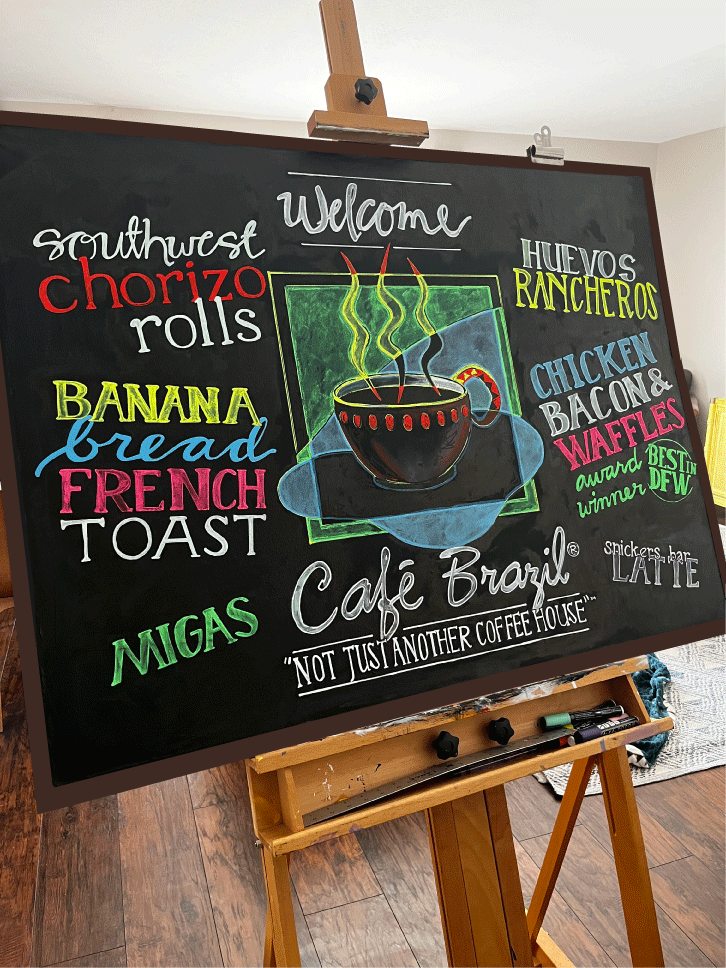 Welcome
southwest
chorizo
rolls
BANANA
bread
FRENCH
TOAST
MIGAS
HUEVOS
RANCHEROS
CHICKEN
BACON &
WAFFLES
award
winner
BEST IN
DFW
snickers bar
LATTE
Café Brazil®
"NOT JUST ANOTHER COFFEE HOUSE"™